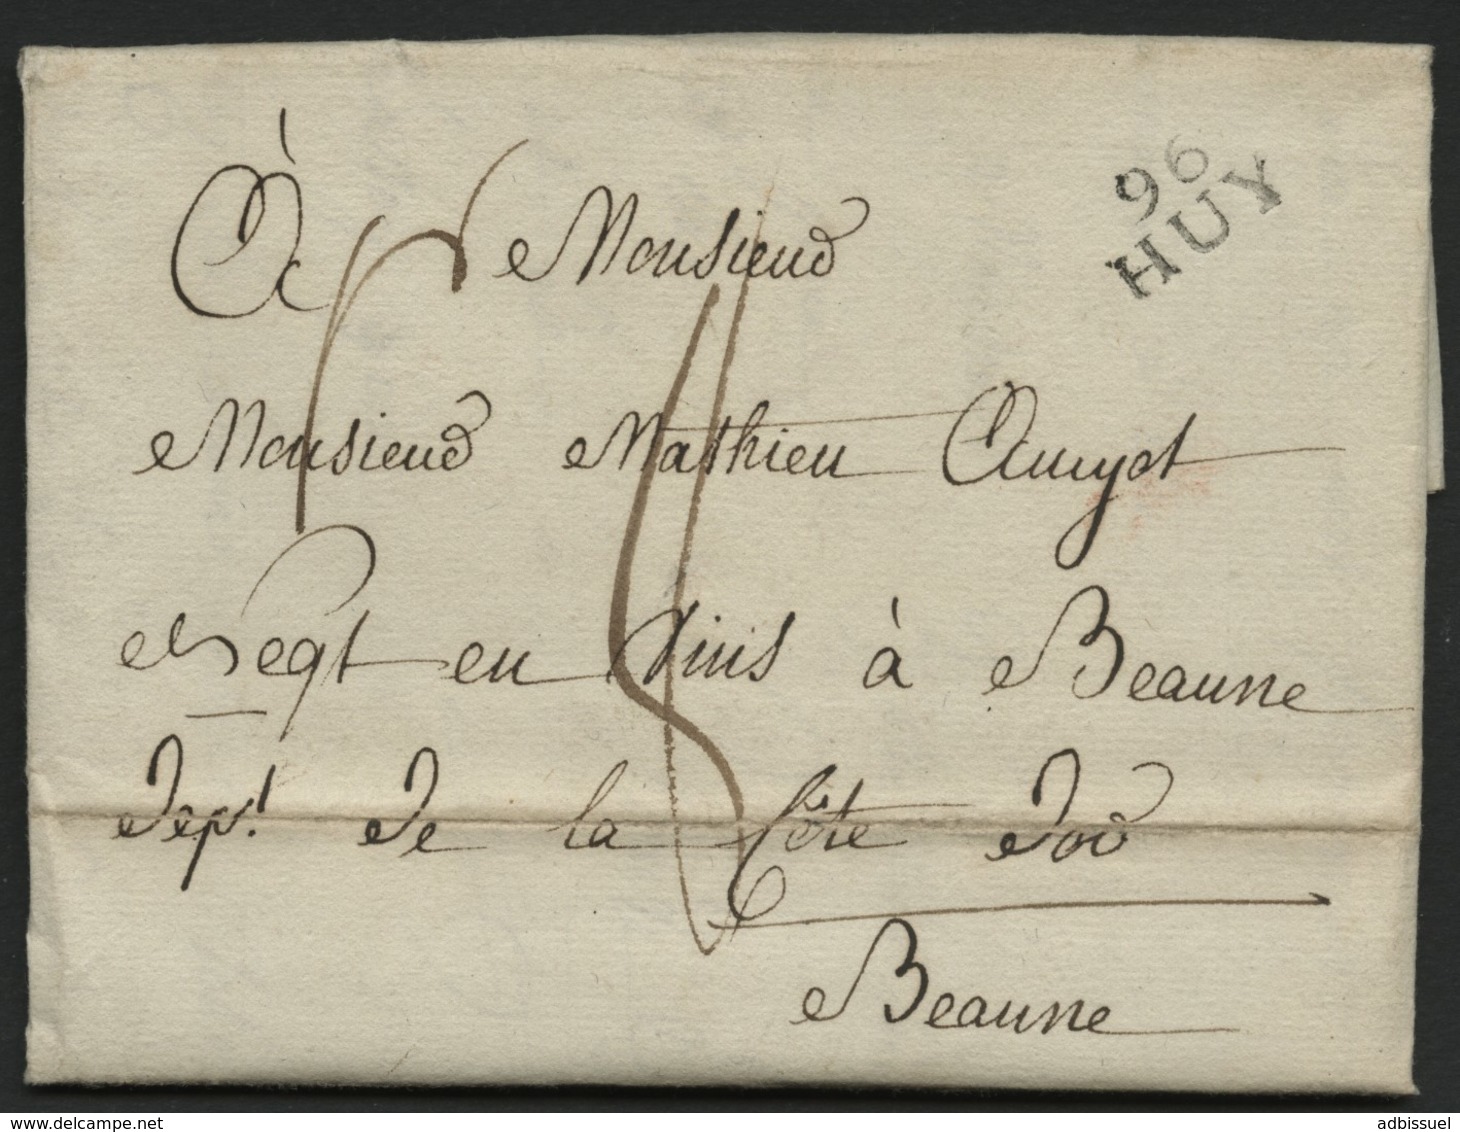 96
HUY
À Monsieur
Monsieur Mathieu Amyot
Negt en Vins à Beaune
Dept. De la Côte Dor
Beaune
www.delcampe.net
adbissuel